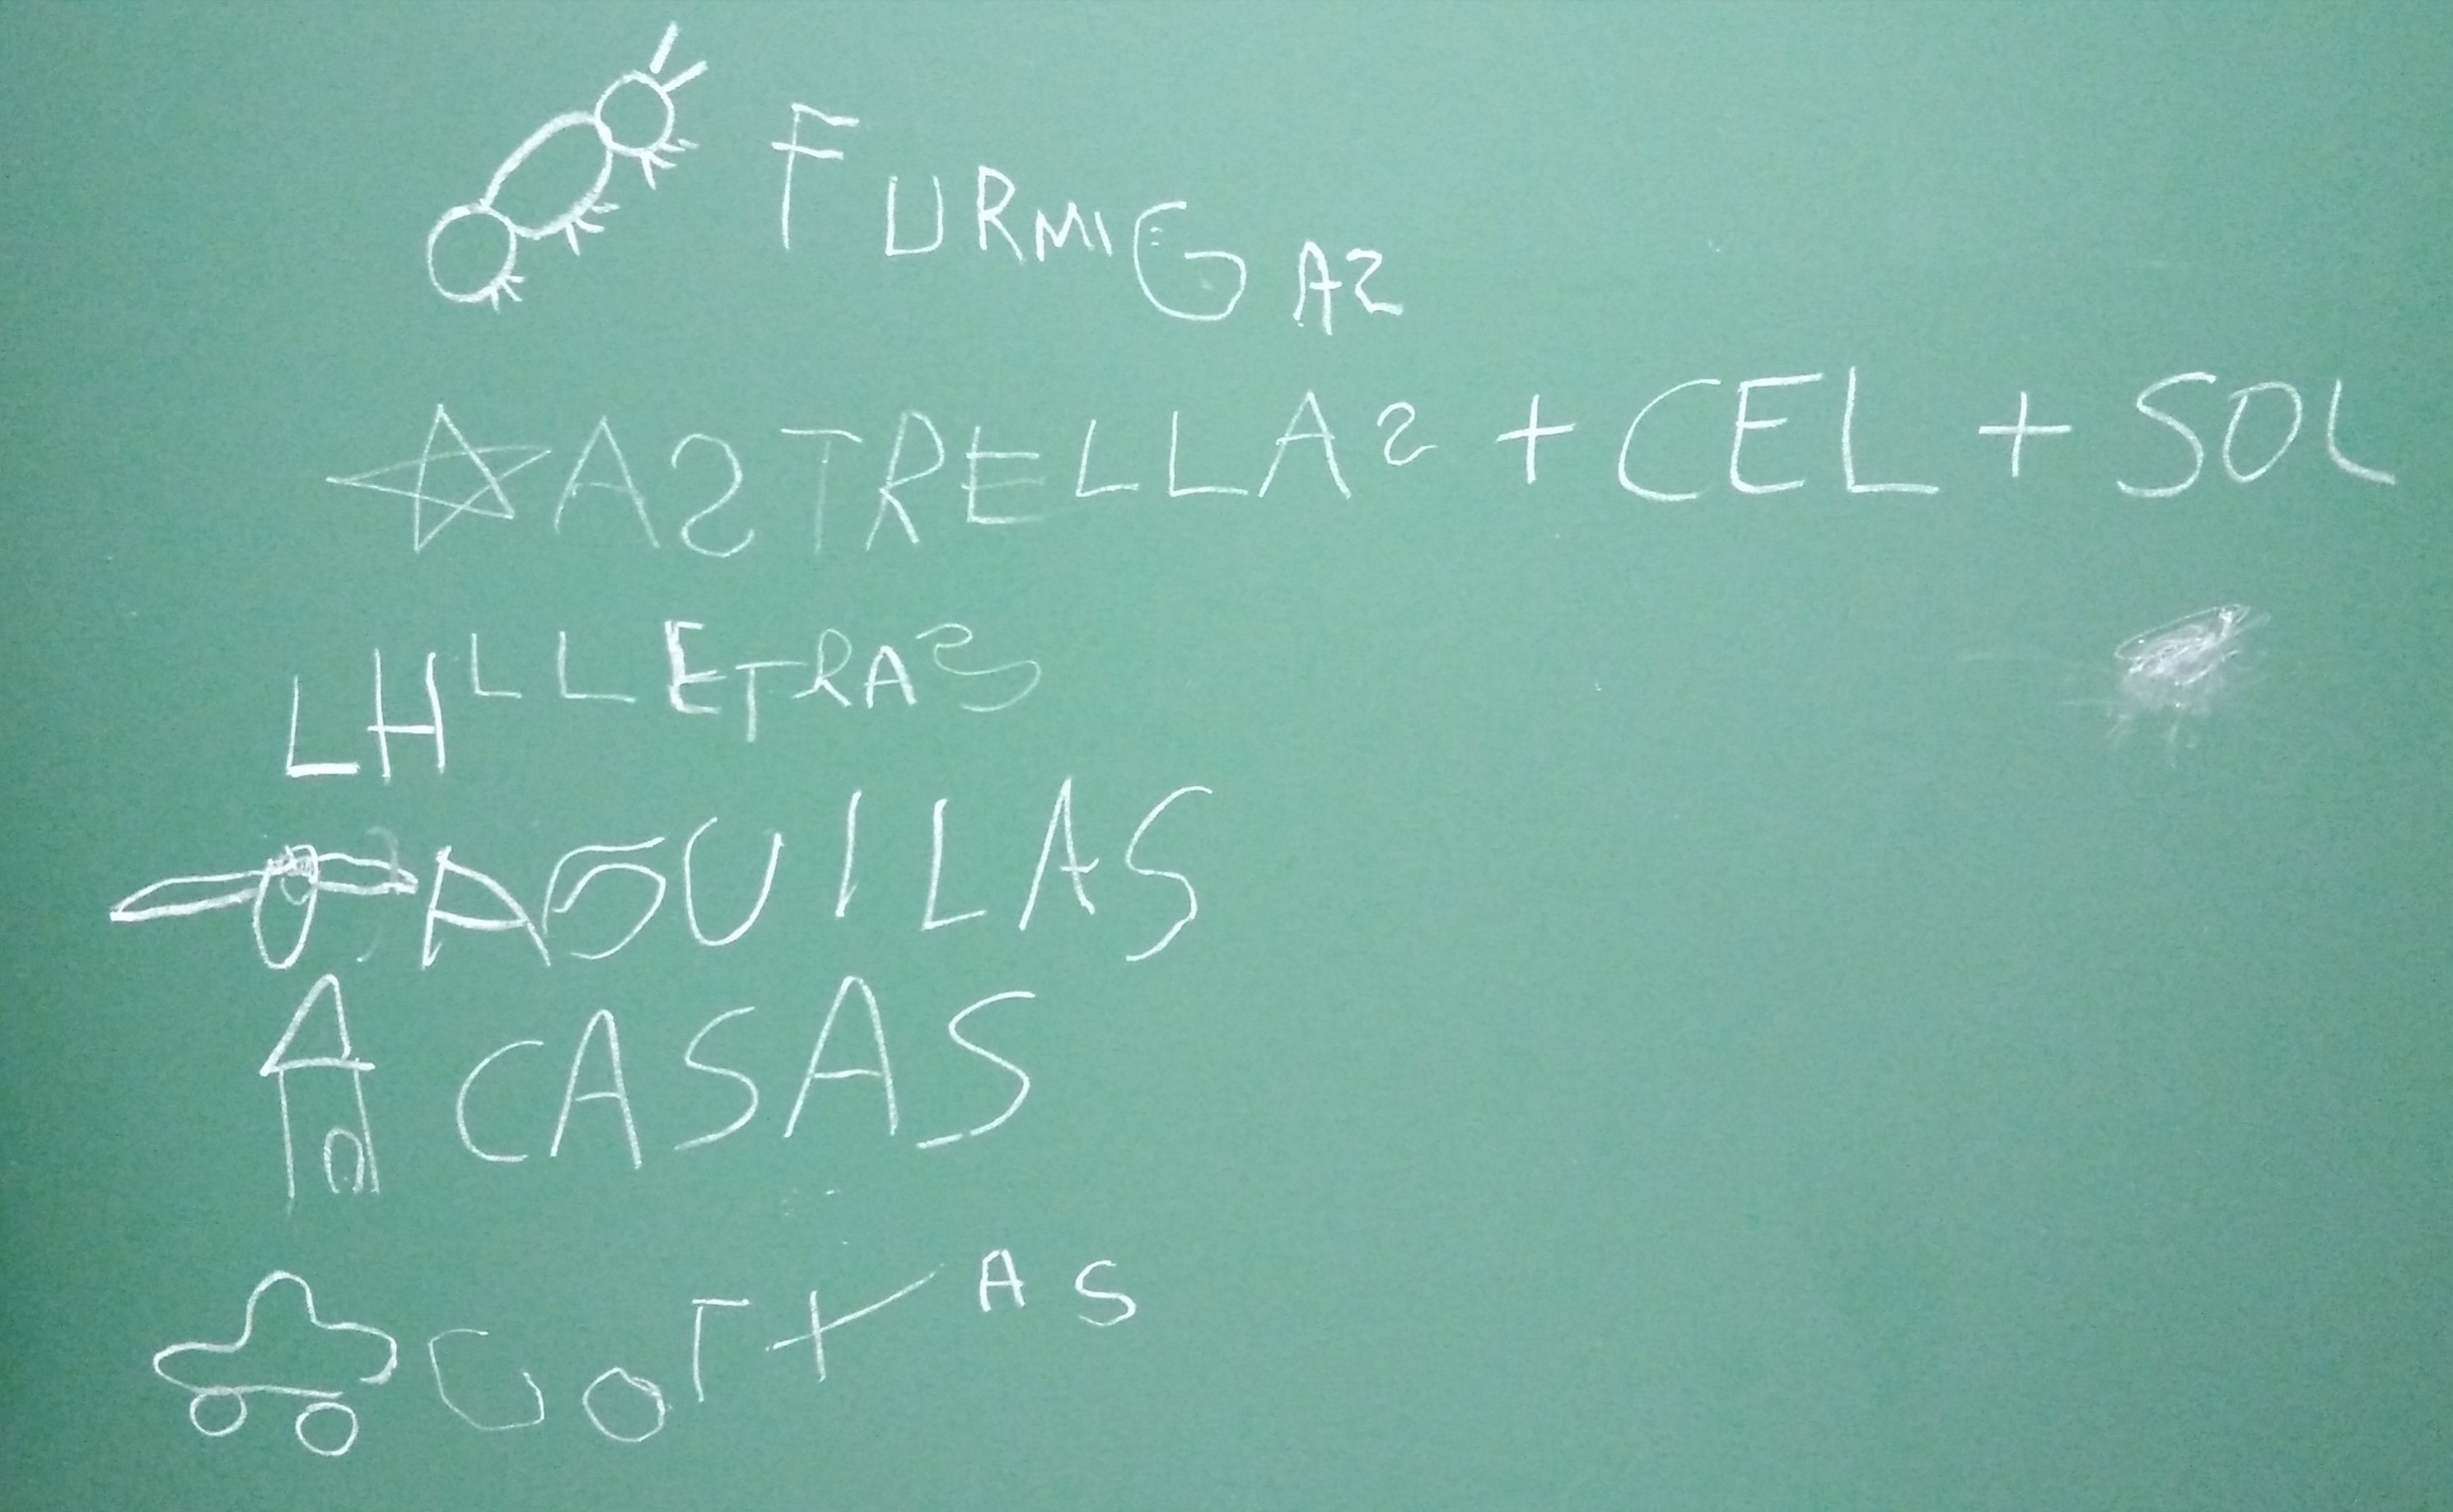 FURMIGAS
ASTRELLAS + CEL + SOL
LH LLETRAS
AGUILAS
CASAS
COTXAS